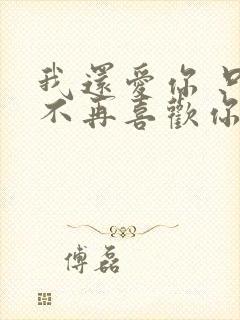 我還愛你 只
不再喜歡你
傅磊